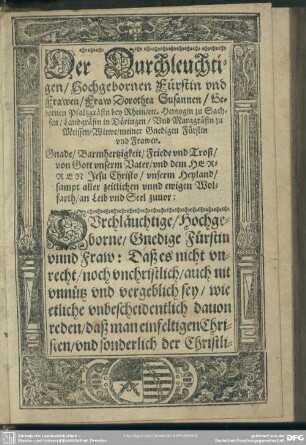 Der Durchleuchti-
gen/ Hochgebornen Fürstin vnd
Frawen/ Fraw Dorothea Susannen/ Ge-
bornen Pfaltzgräfin bey Rhein/etc. Hertzogin zu Sach-
sen/ Landgräfin in Döringen/ Vnd Marggräfin zu
Meissen/ Witwe/meiner Gnedigen Fürstin
vnd Frawen.
Gnade/ Barmhertzigkeit/ Friede vnd Trost/
von Gott vnserm Vater/ vnd dem HER-
REN Jesu Christo/ vnserm Heyland/
sampt aller zeitlichen vnnd ewigen Wol-
farth/an Leib vnd Seel zuuor:
DVrchläuchtige/ Hochge-
borne/ Gnedige Fürstin
vnnd Fraw: Daß es nicht vn-
recht/ noch vnchristlich/ auch nit
vnnütz vnd vergeblich sey/ wie
etliche vnbescheidentlich dauon
reden/ daß man einfeltigen Chri-
sten/ vnd sonderlich der Christli-
Sächsische Landesbibliothek –
Staats- und Universitätsbibliothek Dresden
gefördert von der
Deutschen Forschungsgemeinschaft
DFG